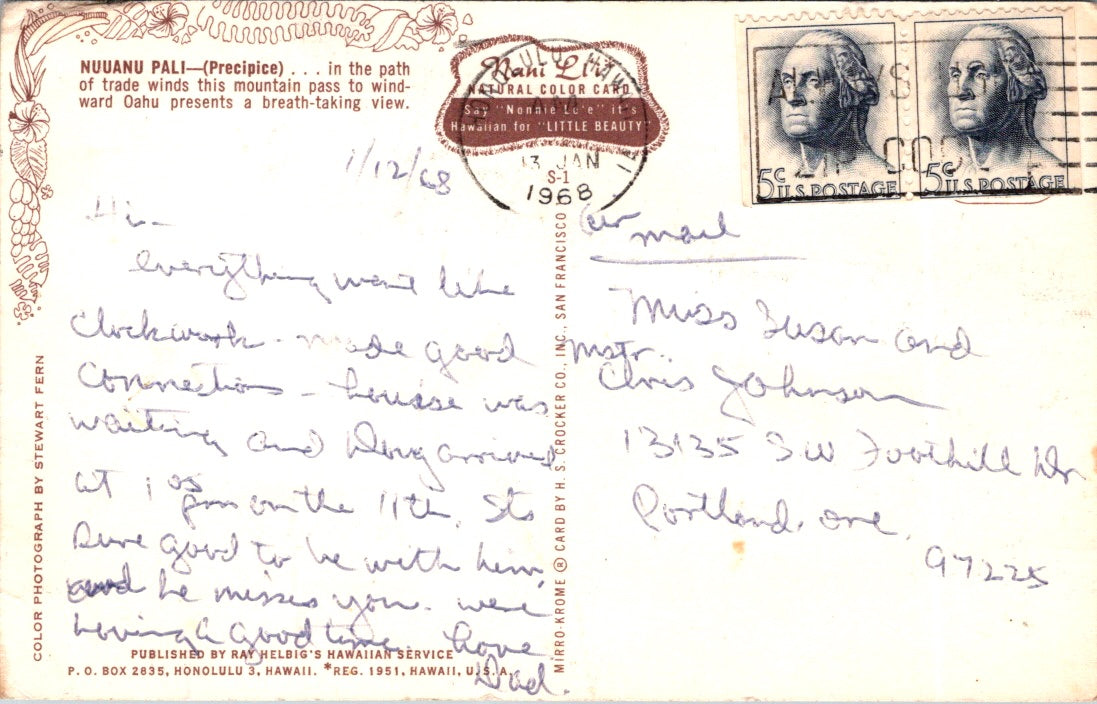 NUUANU PALI—(Precipice) . . . in the path
of trade winds this mountain pass to wind-
ward Oahu presents a breath-taking view.
Nani Li'i
NATURAL COLOR CARD
Say "Nonnie Le'e" it's
Hawaiian for "LITTLE BEAUTY"
HONOLULU, HAWAII
13 JAN
S-1
1968
ALWAYS USE
ZIP CODE
5¢ U.S. POSTAGE
5¢ U.S. POSTAGE
1/12/68
Hi -
everything went like
Clockwork - made good
Connections - Louise was
waiting and Doug arrived
at 1 05
pm on the 11th. Its
sure good to be with him,
and he misses you. were
having a good time. Love
Dad.
air mail
Miss Susan and
Mstr.
Chris Johnson
13135 SW Foothill Dr
Portland, Ore,
97225
COLOR PHOTOGRAPH BY STEWART FERN
MIRRO-KROME ® CARD BY H. S. CROCKER CO., INC., SAN FRANCISCO
PUBLISHED BY RAY HELBIG'S HAWAIIAN SERVICE
P. O. BOX 2835, HONOLULU 3, HAWAII. *REG. 1951, HAWAII, U.S.A.